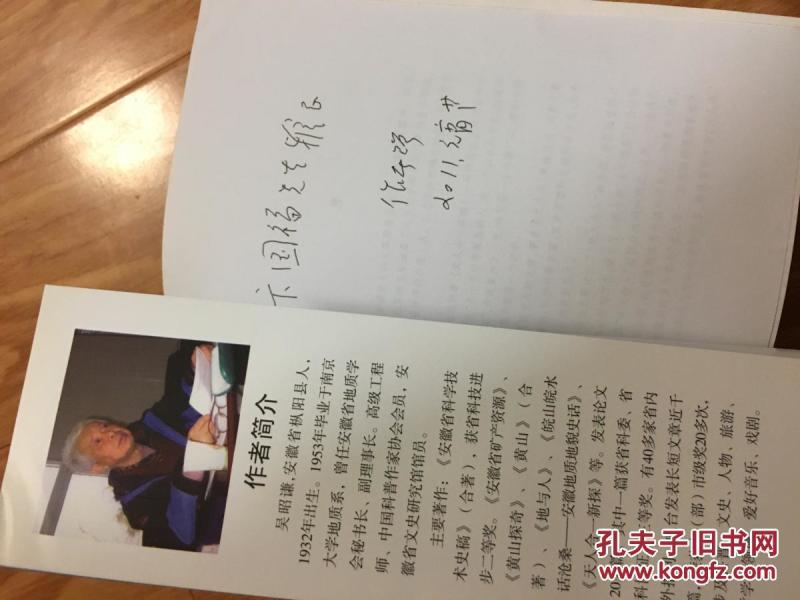 卞国福先生雅正
作者赠
2011.元宵节
作者简介
吴昭谦,安徽省枞阳县人,
1932年出生。1953年毕业于南京
大学地质系，曾任安徽省地质学
会秘书长、副理事长。高级工程
师、中国科普作家协会会员，安
徽省文史研究馆馆员。
主要著作：《安徽省科学技
术史稿》（合著），获省科技进
步二等奖。《安徽省矿产资源》、
《黄山探奇》、《黄山》（合
著）、《地与人》、《皖山皖水
话沧桑——安徽地质地貌史话》、
《天人合一新探》等。发表论文
20 篇 其中一篇获省科委、省
科 三等奖。有40多家省内
外报 台发表长短文章近千
篇, （部）市级奖20多次,
涉及 文史、人物、旅游、
学 爱好音乐、戏剧。
孔夫子旧书网
www.kongfz.com